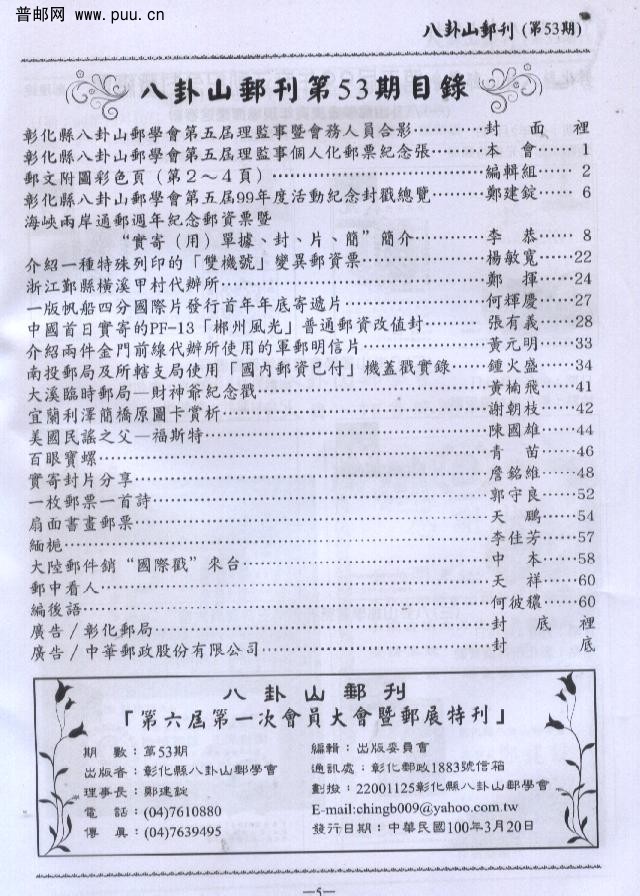 普邮网 www.puu.cn
八卦山郵刊 (第53期)
八卦山郵刊第53期目錄
彰化縣八卦山郵學會第五屆理監事暨會務人員合影…………封面裡
彰化縣八卦山郵學會第五屆理監事個人化郵票紀念張………本會……1
郵文附圖彩色頁（第2～4頁）………………編輯組……2
彰化縣八卦山郵學會第五屆99年度活動紀念封戳總覽………鄭建錠……6
海峽兩岸通郵週年紀念郵資票暨
“實寄（用）單據、封、片、簡”簡介…………李恭……8
介紹一種特殊列印的「雙機號」變異郵資票…………楊敏寬……22
浙江鄞縣橫溪甲村代辦所………………鄭揮……24
一版帆船四分國際片發行首年年底寄遞片…………何輝慶……27
中國首日實寄的PF-13「郴州風光」普通郵資改值封………張有義……28
介紹兩件金門前線代辦所使用的軍郵明信片…………黃元明……33
南投郵局及所轄支局使用「國內郵資已付」機蓋戳實錄……鍾火盛……34
大溪臨時郵局—財神爺紀念戳………………黃楠飛……41
宜蘭利澤簡橋原圖卡賞析………………謝朝枝……42
美國民謠之父—福斯特………………陳國雄……44
百眼寶螺………………青苗……46
實寄封片分享………………詹銘維……48
一枚郵票一首詩………………郭守良……52
扇面書畫郵票………………天鵬……54
緬梔………………李佳芳……57
大陸郵件銷“國際戳”來台………………中本……58
郵中看人………………天祥……60
編後語………………何彼穠……60
廣告／彰化郵局………………封底裡
廣告／中華郵政股份有限公司………………封底
八卦山郵刊
「第六屆第一次會員大會暨郵展特刊」
期數：第53期
出版者：彰化縣八卦山郵學會
理事長：鄭建錠
電話：(04)7610880
傳真：(04)7639495
編輯：出版委員會
通訊處：彰化郵政1883號信箱
劃撥：22001125彰化縣八卦山郵學會
E-mail:chingb009@yahoo.com.tw
發行日期：中華民國100年3月20日
—5—